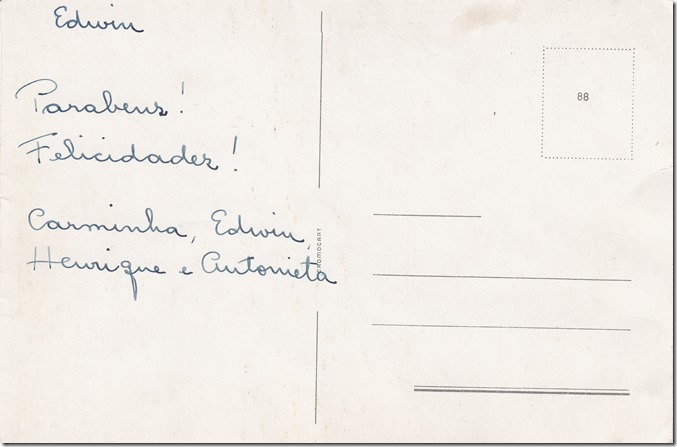 Edwin
Parabens!
Felicidades!
Carminha, Edwin,
Henrique e Antonieta
CROMOCART
88